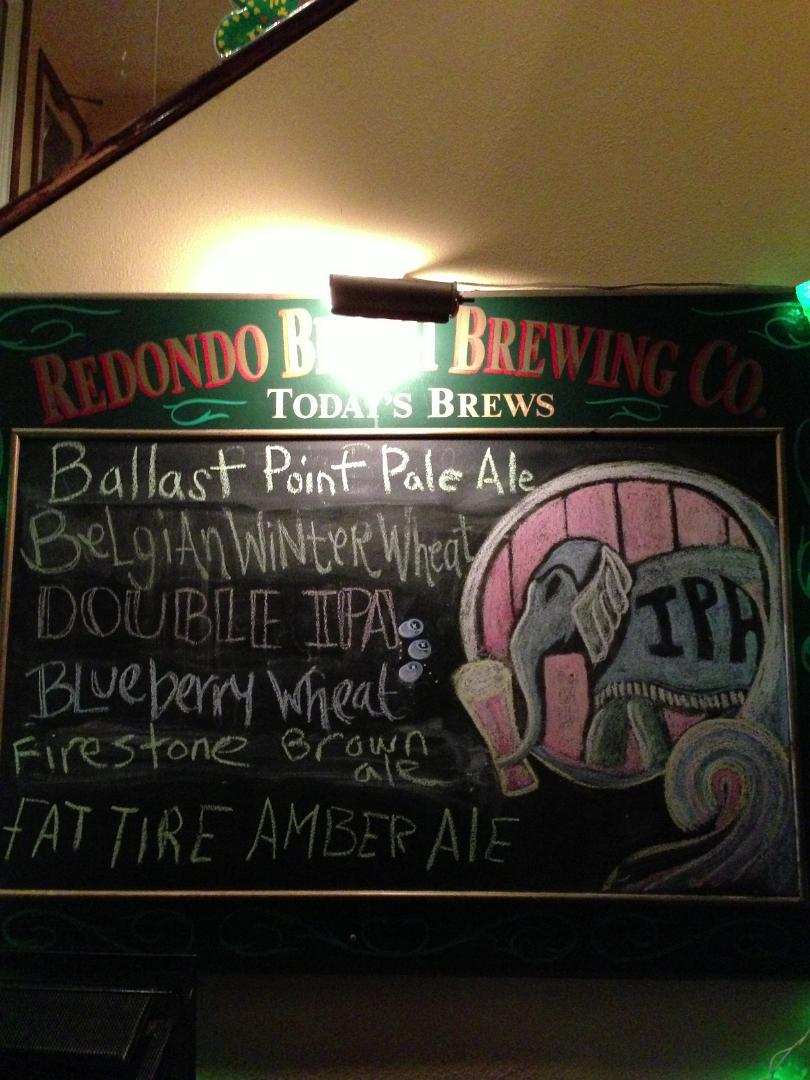 REDONDO BEACH BREWING CO.
TODAY'S BREWS
Ballast Point Pale Ale
BeLgiAn WiNteR Wheat
DOUBLE IPA
BLueberry Wheat
Firestone Brown
ale
FAT TIRE AMBER AlE
IPA